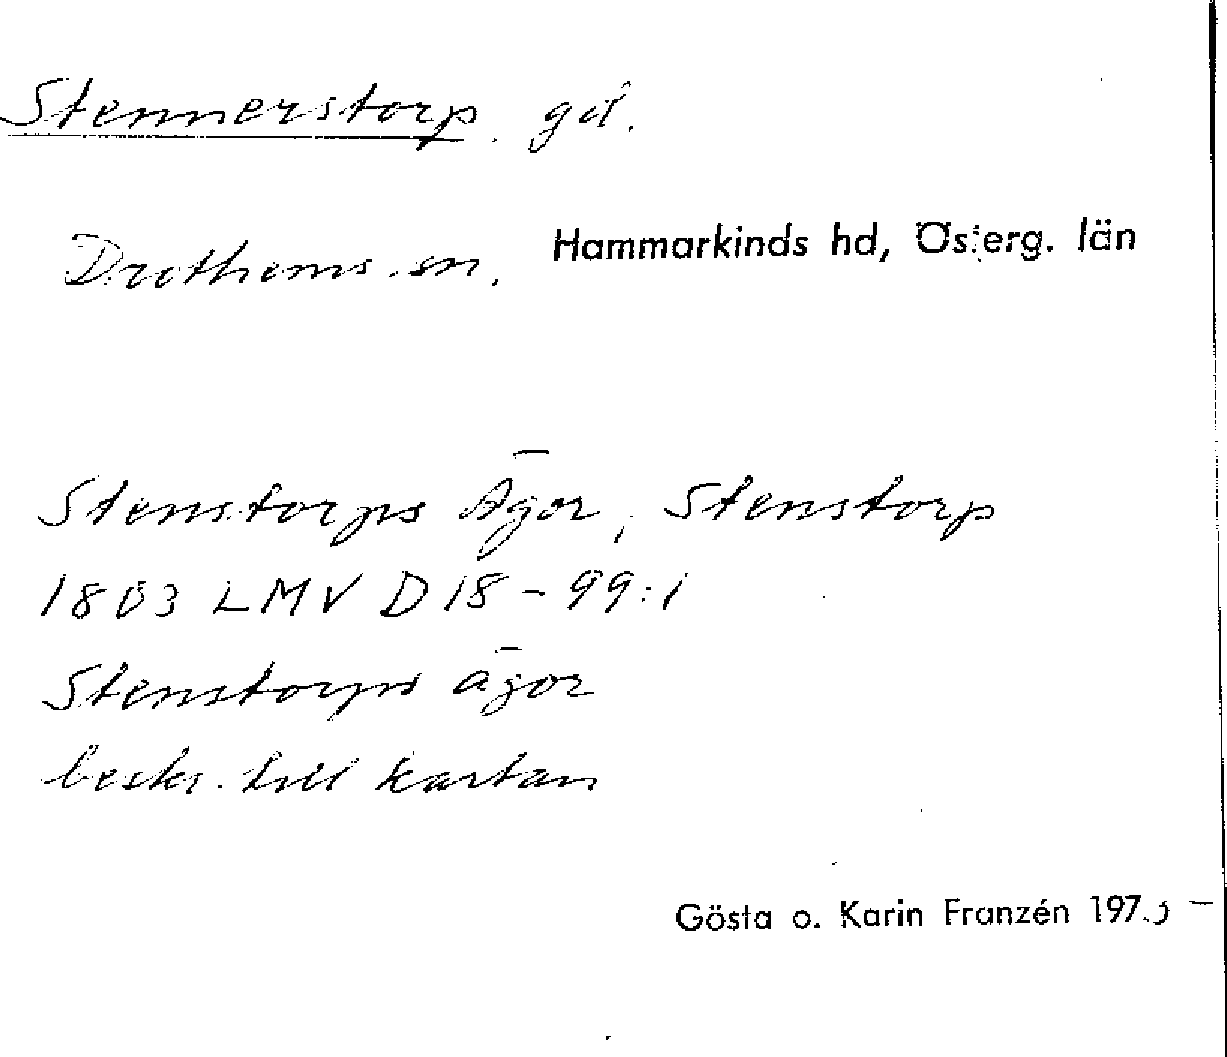 Stennerstorp. gd.
Drothems sn. Hammarkinds hd, Österg. län
Stenstorps Ägor, Stenstorp
1803 LMV D18-99:1
Stenstorps ägor
beskr. till kartan
Gösta o. Karin Franzén